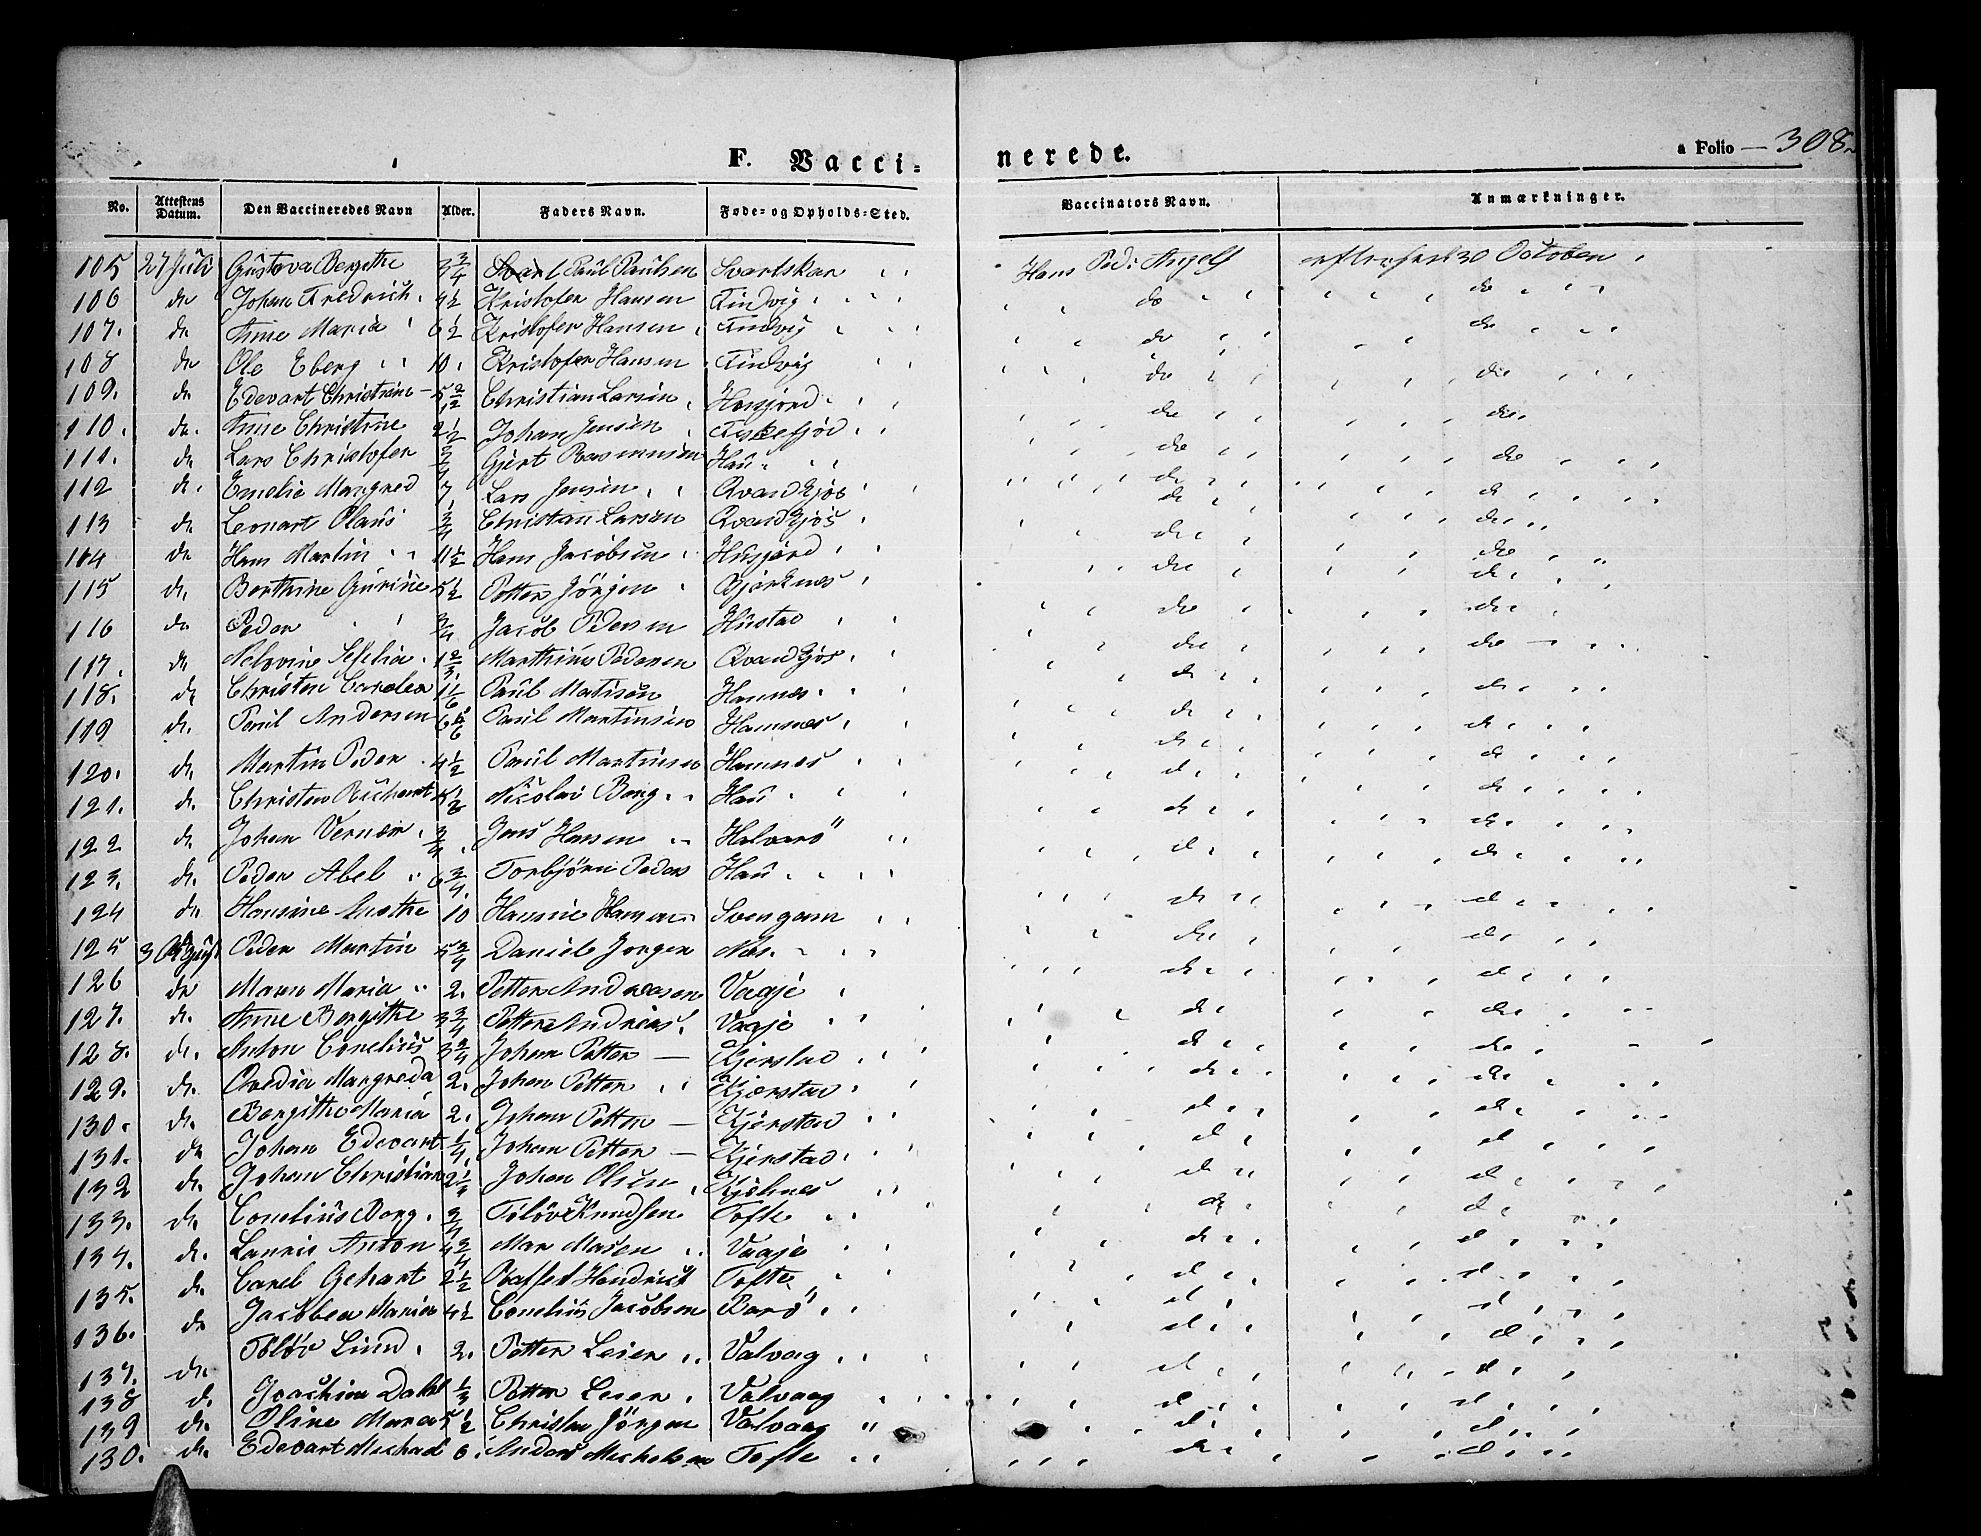 F. Vacci=
nerede.
a Folio — 308.
No. Attestens Datum. Den Vaccineredes Navn Alder. Faders Navn. Føde= og Opholds=Sted. Vaccinators Navn. Anmærkninger.
105 27 Juli Gustava Bergithe 3 3/4 Paul Paulsen Svartskar Hans Ped: Angell 30 October
106 do Johan Fredrich 4 1/2 Kristofer Hansen Tindvig do do
107. do Anne Maria 6 1/2 Kristofer Hansen Tindvig do do
108 do Ole Eberg 10 Kristofer Hansen Tindvig do do
109. do Edevart Christian Christian Larsen do do
110. do. Anne Christine 2 1/2 Johan Jensen do do
111. do Lars Christofer 3/4 Gjert Rasmusen Hau do do
112 do. Emelie Margred 7 Lars Jensen Qvandkjos do do
113 do Leonart Olaus 3/4 Christian Larsen Qvandkjos do do
114 do Hans Martin 11 1/2 Hans Jacobsen Husjord do do
115 do. Berthine Gurine 5 1/2 Petter Jörgen Bjerknes do do
116 do Peder 3/4 Jacob Pedersen Hustad do do
117. do Marthinus Pedersen Qvandkjos do do
118. do Christen Carolea 1 1/6 Paul Matisen Hamnes do do
119 do. Paul Andersen 6 5/6 Paul Martinsen Hamnes do do
120. do. Martin Peder 4 1/2 Paul Martinsen Hamnes do do
121. do. Christen Richart Nicolai Berg Hau do do
122 do Johan Verner 3/4 Jens Hansen Halvarö do do
123. do. Peder Abel 6 3/4 Torbjörn Peders Hau do do
124 do Hansine Anethe 10 Svengam do do
125 3 August Peder Martin 5 3/4 Daniel Jorgen Nes do do
126 do Maren Maria 2. Petter Andreasen Vaaje do do
127. do. Anne Bergithe 3 3/4 Petter Andreas Vaaje do do
128. do. Anton Conelius 3 3/4 Johan Petter — Kjerstad do do
129. do. Qvedia Margreda 2. Johan Petter Kjærstad do do
130. do. Bergithe Maria 2. Johan Petter — Kjerstad do do
131. do Johan Edevart 1/4 Johan Petter — Kjerstad do do
132 do. Johan Christian 2 1/3 Johan Olsen Kjölnes do do
133. do. Conelius Borg 3/4 Tolöv Knudsen Tofte do do
134. do. Lauris Anton 4 3/4 Vaaje do do
135. do. Carel Gehart 2 1/2 Hendrick Tofte do do
136. do Jackbea Maria 4 1/2 Conelius Jacobsen Barö do do
137. do. Tolöv Lund 2. Petter Leier Valvaag do do
138 do Joachim Dahl 1/3 Petter Leier Valvaag do do
139 do. Oline Marea 5 1/2 Christen Jörgen Valvaag do do
130. do. Edevart Michael 6. Anders Michelsen Tofte do do